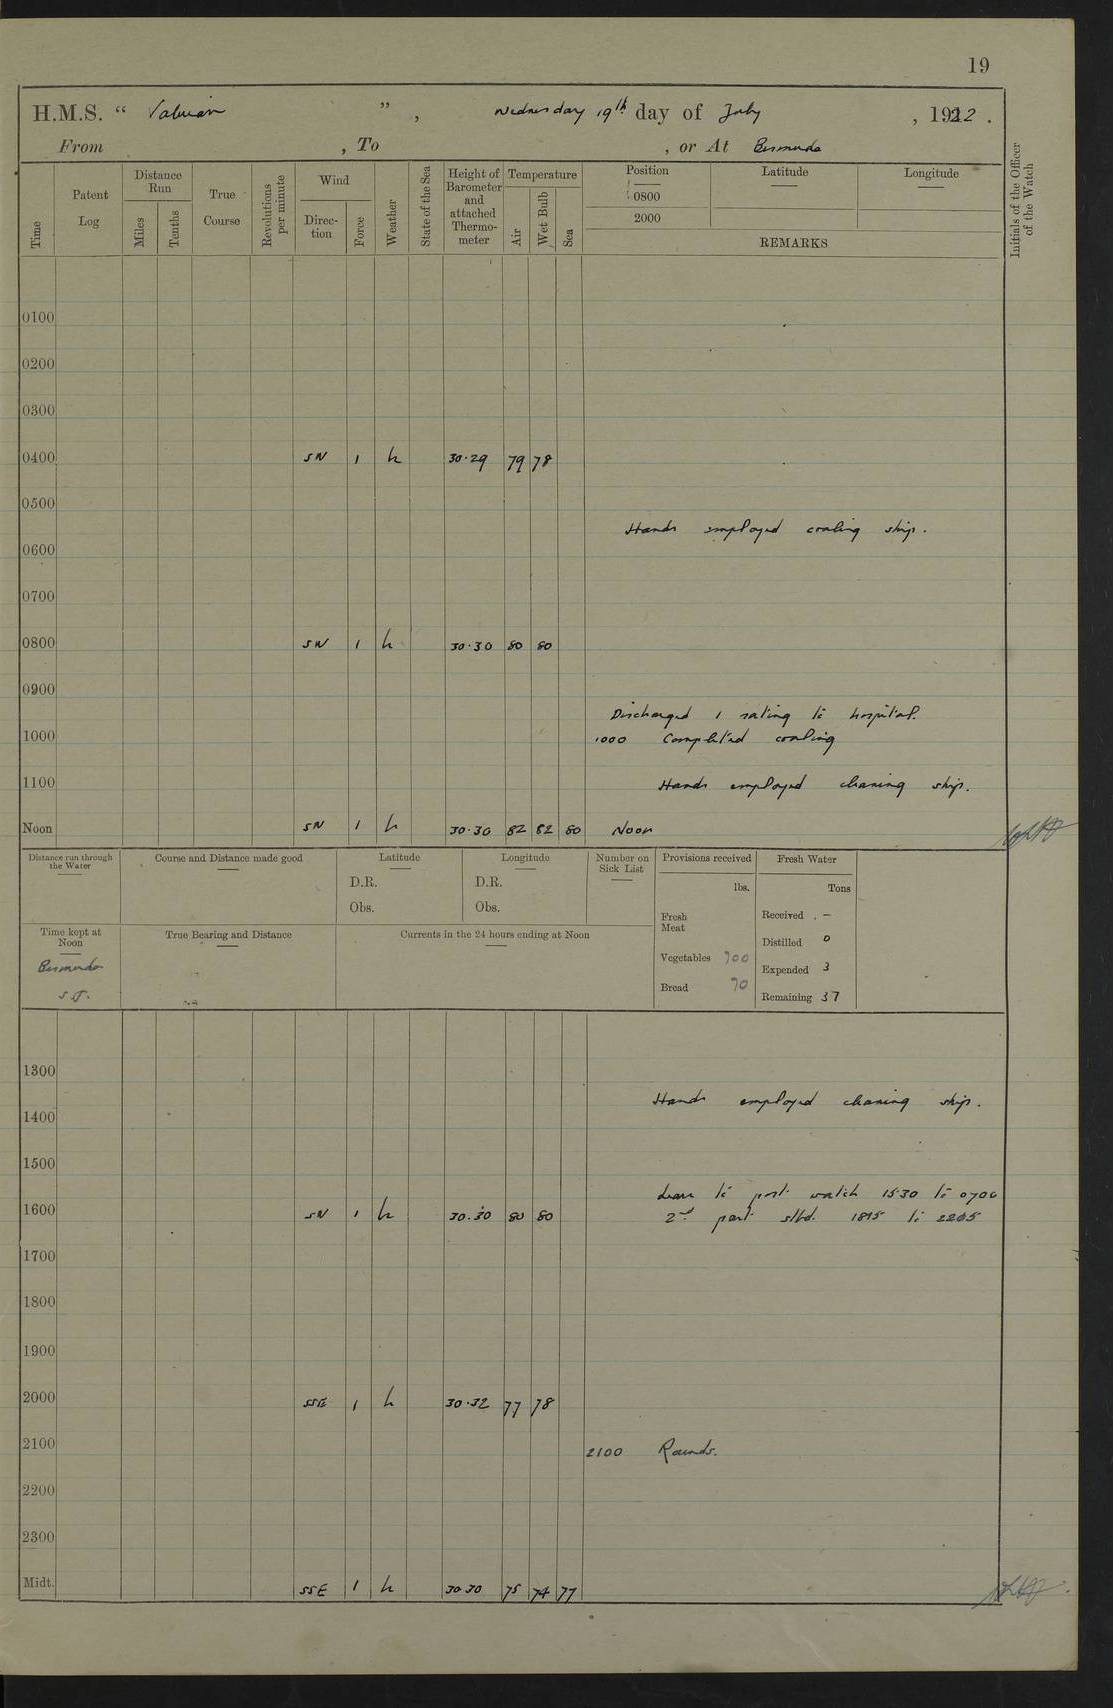 19
H.M.S. " Valerian ", Wednesday 19th day of July, 1922.
From , To , or At Bermuda
Time
Patent Log
Distance Run
Miles
Tenths
True Course
Revolutions per minute
Wind
Direc-tion
Force
Weather
State of the Sea
Height of Barometer and attached Thermo-meter
Temperature
Air
Wet Bulb
Sea
Position Latitude Longitude
0800
2000
REMARKS
Initials of the Officer of the Watch
0100
0200
0300
0400 SW 1 h 30.29 79 78
0500
Hands employed coaling ship.
0600
0700
0800 SW 1 h 30.30 80 80
0900
Discharged 1 rating to hospital.
1000 1000 Completed coaling
1100 Hands employed cleaning ship.
Noon SW 1 h 30.30 82 82 80 Noon
Distance run through the Water
Course and Distance made good
Latitude
D.R.
Obs.
Longitude
D.R.
Obs.
Number on Sick List
Provisions received
lbs.
Fresh Meat
Vegetables 700
Bread 70
Fresh Water
Tons
Received . –
Distilled 0
Expended 3
Remaining 37
Time kept at Noon
Bermuda
S.T.
True Bearing and Distance
Currents in the 24 hours ending at Noon
1300
Hands employed cleaning ship.
1400
1500
Leave to port watch 1530 to 0700
1600 SW 1 h 30.30 80 80 2nd part stbd. 1815 to 2205
1700
1800
1900
2000 SSE 1 h 30.32 77 78
2100 2100 Rounds.
2200
2300
Midt. SSE 1 h 30 30 75 74 77